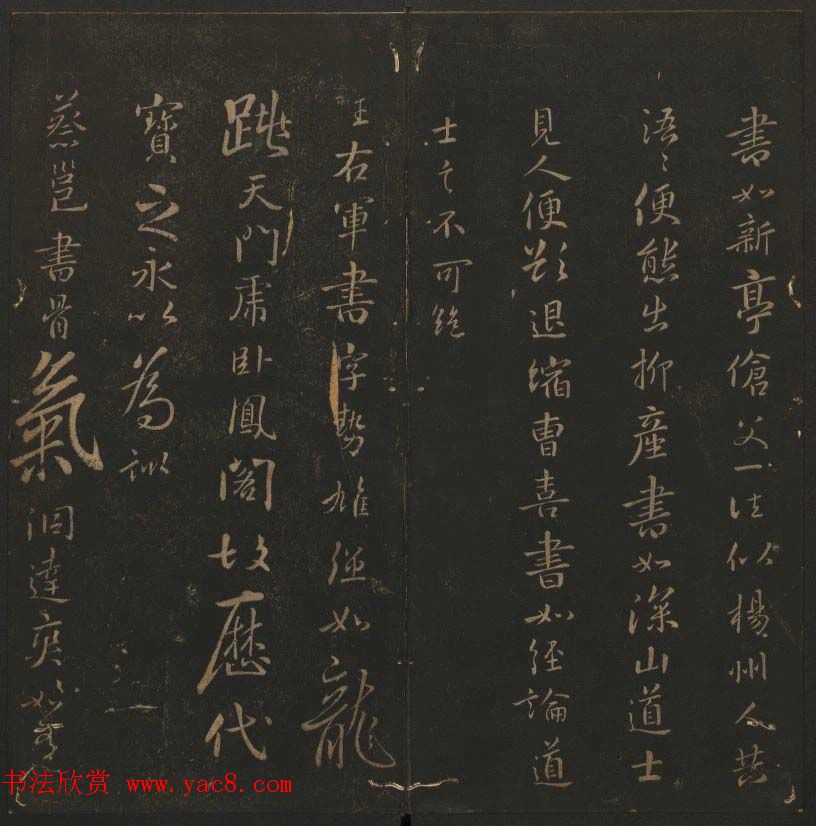 書如新亭傖父一往似楊州人共
語語便態出柳產書如深山道士
見人便欲退縮曹喜書如經論道
士言不可絕
王右軍書字勢雄強如龍
跳天門虎臥鳳閣故歷代
寶之永以為訓
蔡邕書骨氣洞達爽爽如有
书法欣赏 www.yac8.com